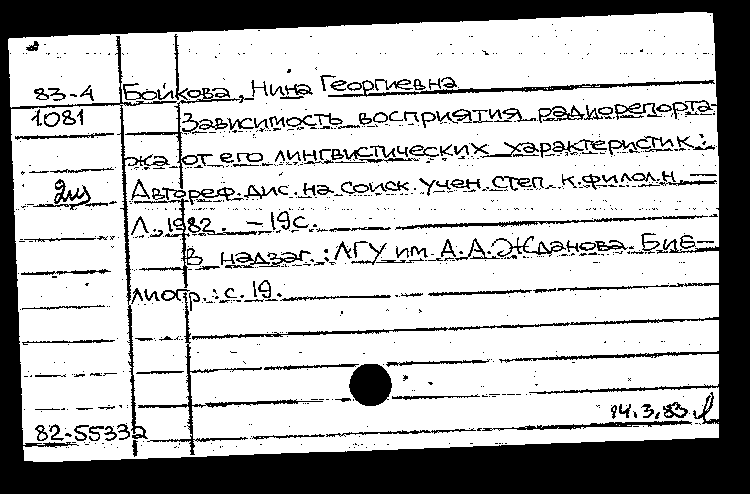 83-4 Бойкова, Нина Георгиевна
1081 Зависимость восприятия радиорепорта-
жа от его лингвистических характеристик:
2из Автореф. дис. на соиск. учен. степ. к. филол. н. —
Л., 1982. - 19с.
В надзаг.: ЛГУ им. А.А. Жданова. Биб-
лиогр.: с. 19.
14.3.83.
82-55332